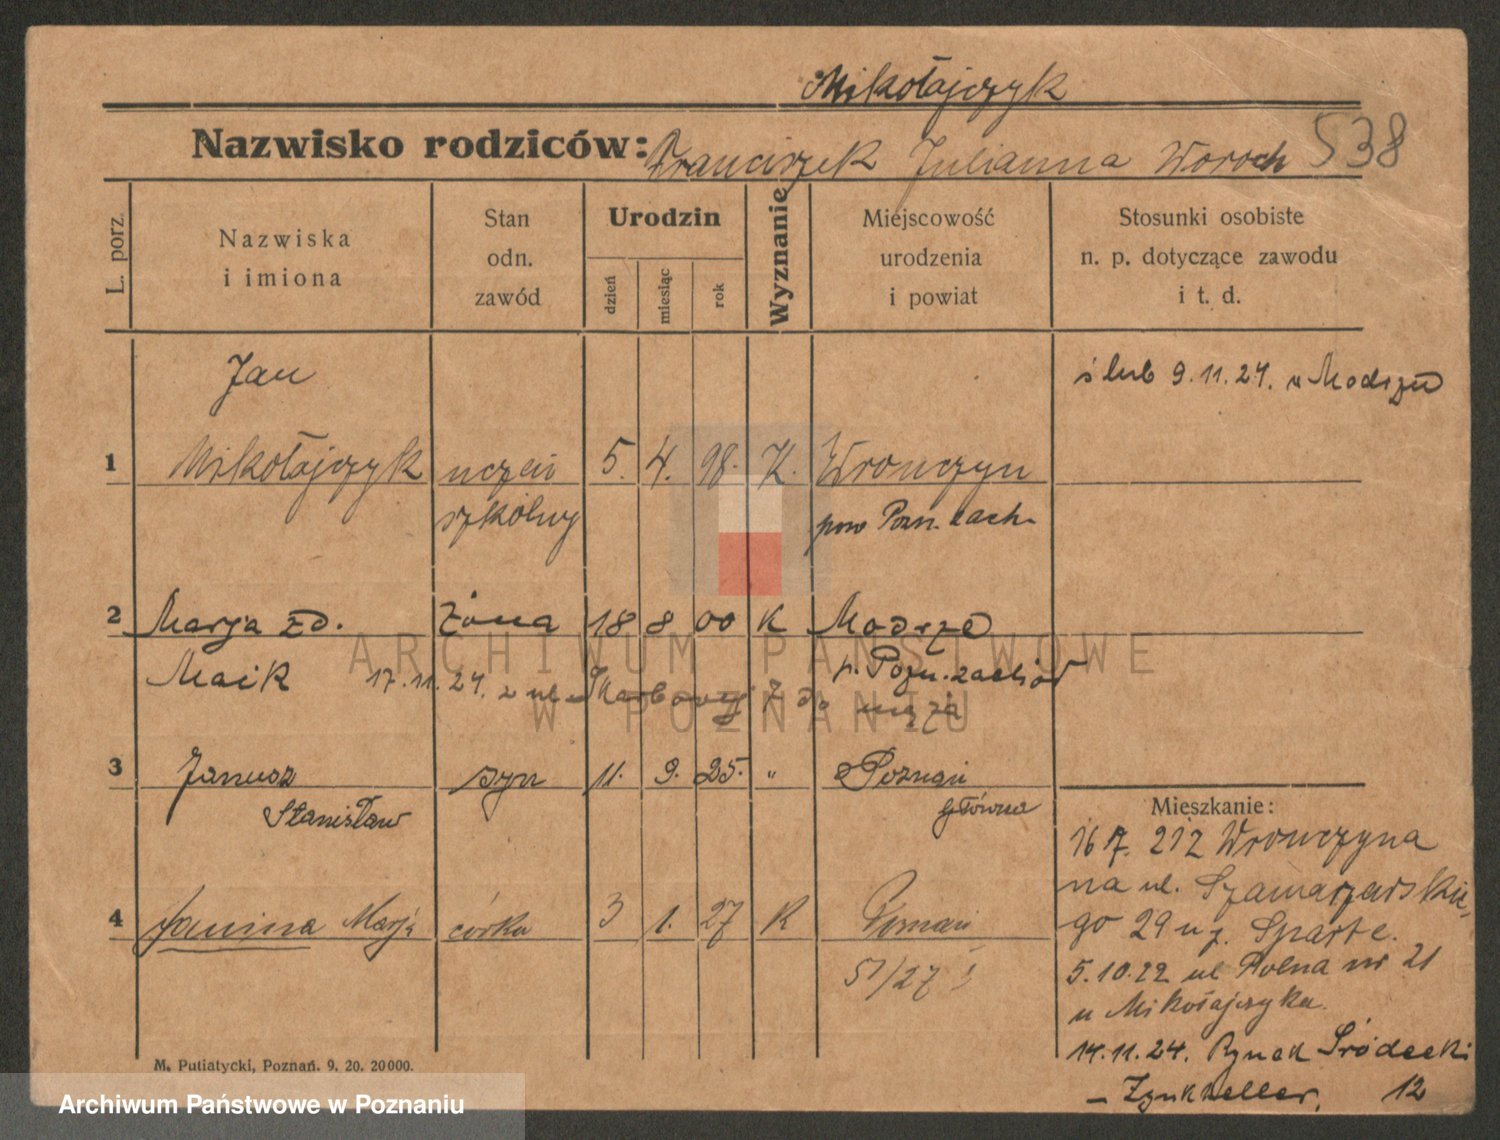 Mikołajczyk
Nazwisko rodziców: Franciszek Julianna Woroch 538
L. porz.
Nazwiska
i imiona
Stan
odn.
zawód
Urodzin
dzień
miesiąc
rok
Wyznanie
Miejscowość
urodzenia
i powiat
Stosunki osobiste
n. p. dotyczące zawodu
i t. d.
Jan
ślub 9.11.24. w Modrzu
1 Mikołajczyk uczeń 5. 4. 98. K. Wronczyn
szkólny pow Pozn. zach.
2 Marja zd. żona 18 8 00 K Modrze
Maik p. Pozn. zachód
17.11.24. z ul. Skarbowej 7 do męża
3 Janusz syn 11. 9. 25. " Poznań
Stanisław główna
Mieszkanie:
16 7. 212 Wronczyna
na ul. Szamarzewskie-
go 29 u p. Szparte.
4 Janina Marja córka 3 1. 27 K Poznań
51/27
5.10.22 ul Polna nr 21
u Mikołajczyka.
14.11.24. Rynek Śródecki
– 12
M. Putiatycki, Poznań. 9. 20. 20000.
ARCHIWUM PAŃSTWOWE
W POZNANIU
Archiwum Państwowe w Poznaniu